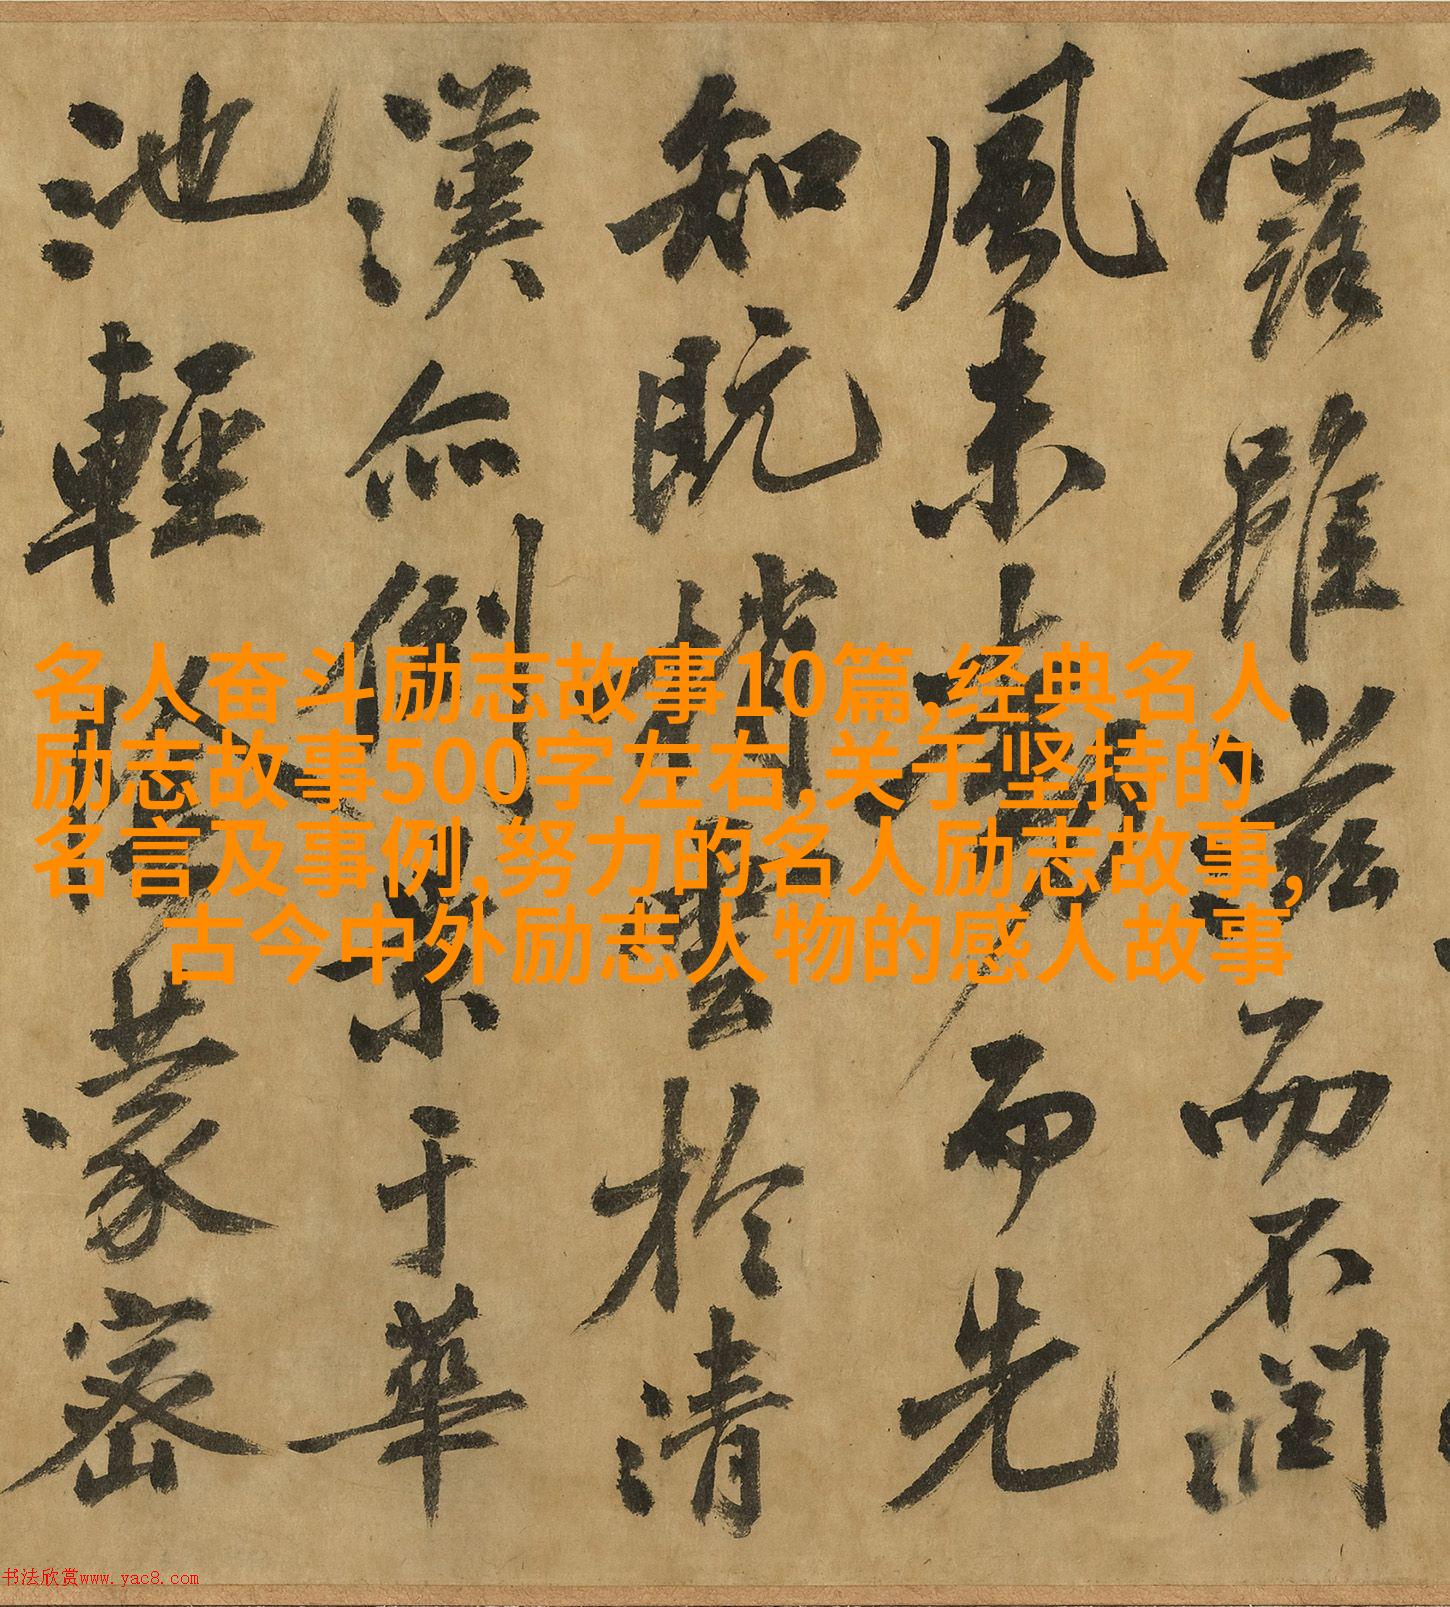 露雖滋而不潤
風未動而先
知既梢雲於清
漢亦倒景于華
池輕陰蒙密
名人奋斗励志故事10篇,经典名人
励志故事500字左右,关于坚持的
名言及事例,努力的名人励志故事,
古今中外励志人物的感人故事
书法欣赏www.yac8.com